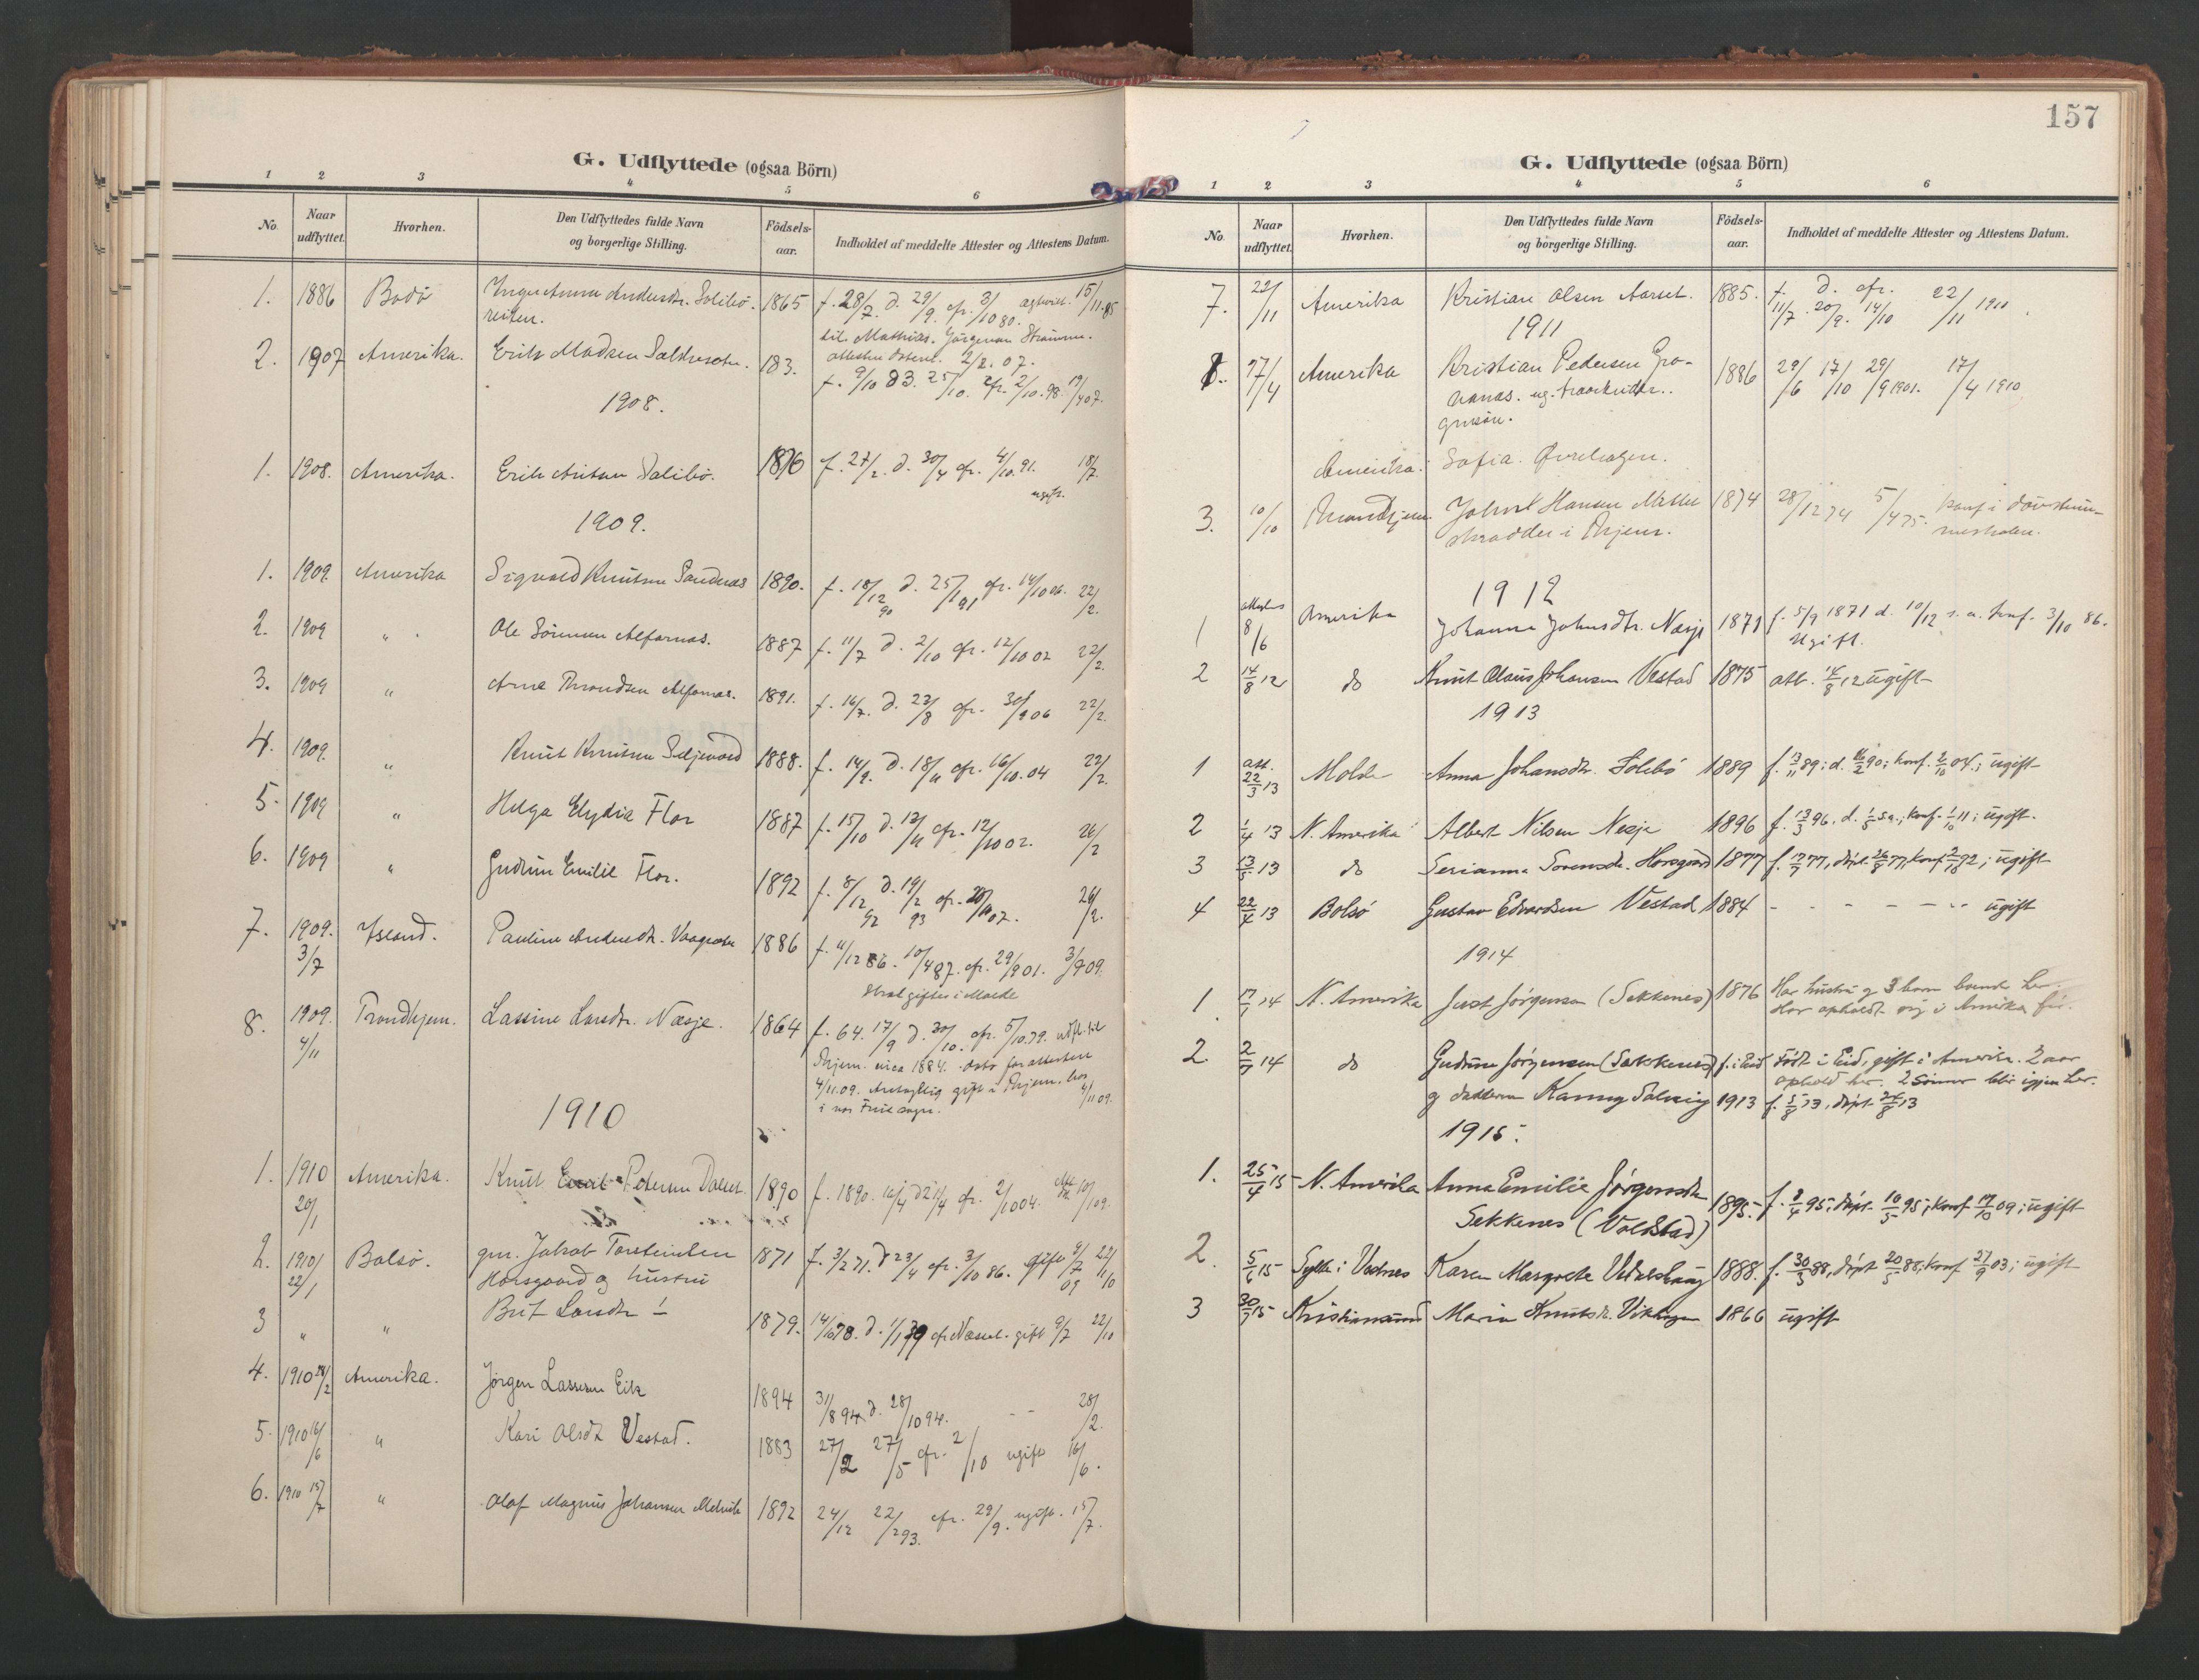 G. Udflyttede (ogsaa Börn)
1 2 3 4 5 6
No. Naar udflyttet. Hvorhen. Den Udflyttedes fulde Navn og borgerlige Stilling. Födselsaar. Indholdet af meddelte Attester og Attestens Datum.
1. 1886 Bodö Anders dr. Solibö- 1865 f. 28/7. d. 29/9. cfr. 3/10 80. 15/11.85
reiten.
til Mathias Jörgensen
2. 1907 Amerika. Erik Madsen 183. 2/2. 07.
f. 9/10 83. 25/10. cfr. 2/10.98. 19/4 07.
1908.
1. 1908. Amerika. Erik Solibö. 1876 f. 27/2. d. 30/4 cfr. 4/10.91. 18/7.
ugift.
1909.
1. 1909. Amerika Sigvald Knutsen Sandnes 1890. f. 18/12 90 d. 25/1 91 cfr. 14/10 06. 22/2.
2. 1909 " Ole Sörensen Alfarnæs. 1887 f. 11/7 d. 2/10 cfr. 12/10 02 22/2.
3. 1909 " Arne Throndsen Alfarnæs. 1891. f. 16/7. d. 23/8 cfr. 30/9 06 22/2.
4. 1909. " Knut Knutsen 1888. f. 14/9. d. 18/11 cfr. 16/10.04 22/2.
5. 1909 " Helga Elydia Flor 1887 f. 15/10 d. 13/11 cfr. 12/10 02. 26/2
6. 1909 " Gudrun Emilie Flor. 1892 f. 8/12 92 d. 19/2 93 cfr. 07. 26/2.
7. 1909. 3/7 Island. Pauline Andersdtr. 1886 f. 11/12 86. 10/4 87. cfr. 29/9 01. 3/7 09.
Skal giftes i Molde
8. 1909. 4/11 Trondhjem. Lassine Larsdtr. Næsje. 1864 f. 64. 17/9 d. 30/10. cfr. 5/10.79. udfl. til
Thjem. circa 1884.
4/11.09. Antagelig gift i Thjem. 4/11 09.
1910
1. 1910 20/1 Amerika. Knut Petersen 1890 f. 1890. d. cfr. 2/10 04.
2. 1910 22/1 Bolsö. gm. Jakob Torsteinsen 1871 f. 3/2 71. d 23/4 cfr. 3/10 86. gift 9/7 09 22/1 10
Horsgaard og hustru
3 " " Brit Larsdtr 1879. d. cfr Næsset. gift 9/7 22/1 10
4. 1910 28/2 Amerika. Jörgen Lassesen Eik 1894 31/8 94 d. 28/10 94. - - 28/2.
5. 1910 16/6 " Kari Olsdtr Vestad. 1883 27/2 27/5 cfr. 2/10 ugift 16/6.
6. 1910 15/7 " Olaf Magnus Johansen 1892 24/12 22/2 93. cfr. 29/9. ugift. 15/7.
157
G. Udflyttede (ogsaa Börn)
1 2 3 4 5 6
No. Naar udflyttet. Hvorhen. Den Udflyttedes fulde Navn og borgerlige Stilling. Födselsaar. Indholdet af meddelte Attester og Attestens Datum.
7. 22/11 Amerika Kristian Olsen Aarset. 1885. f. 11/7. d. 20/9. cfr. 14/10 22/11 1910.
1911
27/4 Amerika Kristian Pedersen Gro- 1886 29/6 17/10 29/9 1901. 17/4 1910
vanæs. ug.
Amerika. Sofia
3. 10/10 Throndhjem Johan Hansen 1874 28/12 74 5/4 75. konf i Dövstum-
skrædder i Thjem. meskolen.
1912
1 8/6 Amerika Johanna Johnsdtr. Næsje 1871 f. 5/9 1871 d. 10/12 s. a. konf. 3/10 86.
Ugift.
2 14/8 12 do Knut Olaus Johansen Vestad 1875 att. 14/8 12 ugift
1913
1 att. 22/3 13 Molde Anna Johansdtr. Solibö 1889 f. 13/11 89; d. 90; konf. 2/10 04.; ugift
2 1/4 13 N. Amerika Albert Nilsen Nesje 1896 f. 13/3 96. d. 1/5 s.a.; konf. 1/10 11; ugift.
3 13/5 13 do Serianna Sorensdr. Horsgård 1877 f. 77, döpt 26/8 77, konf. 92; ugift
4 22/4 13 Bolsö Gustav Edvardsen Vestad 1884 - - - - - ugift
1914
1. 14 N. Amerika Just Jörgensen (Sekkenes) 1876 Har hustru og 3 born boende her.
Har opholdt sig i Amerika för.
2. 14 do Gudrun Jörgensen (Sekkenes) f. i Eid Födt i Eid, gift i Amerika. 2 aar
ophold her. 2 sönner blir igjen her.
g datteren Kanny Solveig 1913 f. 5/8 13, döpt 24/8 13
1915.
1. 25/4 15 N. Amerika Anna Emilie Jörgensdtr 1895. f. 8/4 95; döpt 10/5 95; konf 17/10 09; ugift
Sekkenes (Voldstad)
2. 5/6 15 Sylte i Vestnes Karen Margrete 1888. f. 30/3 88, döpt 20/5 88, konf 27/9 03; ugift
3 15 Kristiansund Marie Knutsdr. 1866 ugift